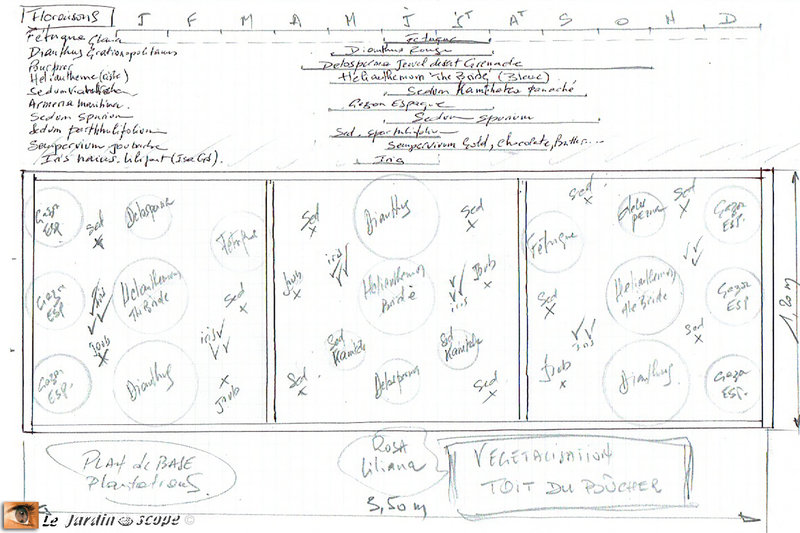 Floraisons J F M A M J JT AT S O N D
Fétuque
Fétuque
Dianthus Gratianopolitanus
Dianthus Rouge
Pourpier
Delosperma Jewel desert Grenade
Hélianthème
Hélianthemum The Bride (Bleue)
Sedum
Sedum Kamchatka panaché
Armeria maritima
Gazon Espagne
Sedum spurium
Sedum spurium
Sedum
Sed. spathulifolium
Sempervivum joubarbe
Sempervivum Gold, chocolate,
Iris
Gazon ESP.
Sed
Delosperma
Fétuque
Gazon ESP
iris
Hélianthemum The Bride
Sed
iris
Joub
Gazon ESP.
Dianthus
Joub
Sed
Dianthus
Sed
iris
Joub
Hélianthemum Bride
Joub
iris
Sed Kamtch
Sed Kamtch
Sed
Delosperma
Sed
Sed
Delosperma
Sed
Gazon ESP.
Fétuque
Sed
Hélianthemum the Bride
Gazon ESP.
iris
Sed
Joub
Dianthus
Gazon ESP.
1,80 m
PLAN de BASE
Plantations
ROSA
Liliana
VEGETALISATION
TOIT DU BÛCHER
3,50 m
Le Jardin scope ©